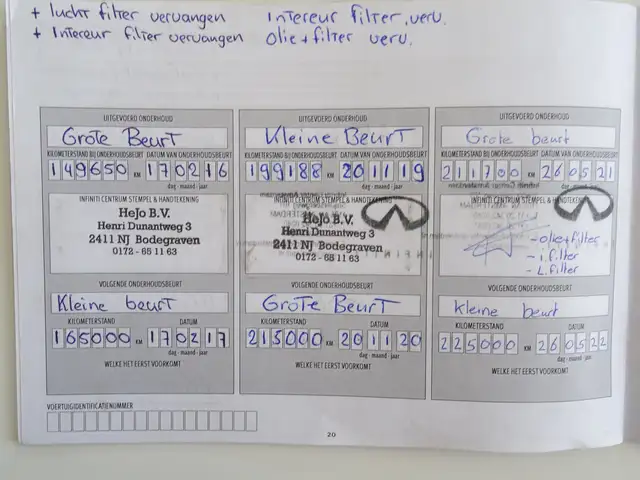 + lucht filter vervangen
+ Intereur filter vervangen
Intereur filter verv.
olie + filter verv.
UITGEVOERD ONDERHOUD
Grote Beurt
KILOMETERSTAND BIJ ONDERHOUDSBEURT DATUM VAN ONDERHOUDSBEURT
149650 KM 170216
dag - maand - jaar
INFINITI CENTRUM STEMPEL & HANDTEKENING
HeJo B.V.
Henri Dunantweg 3
2411 NJ Bodegraven
0172 - 65 11 63
VOLGENDE ONDERHOUDSBEURT
Kleine beurt
KILOMETERSTAND DATUM
165000 KM 170217
dag - maand - jaar
WELKE HET EERST VOORKOMT
UITGEVOERD ONDERHOUD
Kleine Beurt
KILOMETERSTAND BIJ ONDERHOUDSBEURT DATUM VAN ONDERHOUDSBEURT
199188 KM 201119
dag - maand - jaar
INFINITI CENTRUM STEMPEL & HANDTEKENING
HeJo B.V.
Henri Dunantweg 3
2411 NJ Bodegraven
0172 - 65 11 63
VOLGENDE ONDERHOUDSBEURT
Grote Beurt
KILOMETERSTAND DATUM
215000 KM 201120
dag - maand - jaar
WELKE HET EERST VOORKOMT
UITGEVOERD ONDERHOUD
Grote beurt
KILOMETERSTAND BIJ ONDERHOUDSBEURT DATUM VAN ONDERHOUDSBEURT
211700 KM 260521
dag - maand - jaar
INFINITI CENTRUM STEMPEL & HANDTEKENING
- olie + filter
- i. filter
- L. filter
VOLGENDE ONDERHOUDSBEURT
kleine beurt
KILOMETERSTAND DATUM
225000 KM 260522
dag - maand - jaar
WELKE HET EERST VOORKOMT
VOERTUIGIDENTIFICATIENUMMER
20